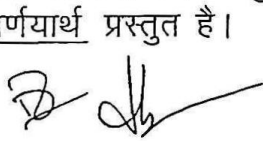 र्णयार्थ प्रस्तुत है।